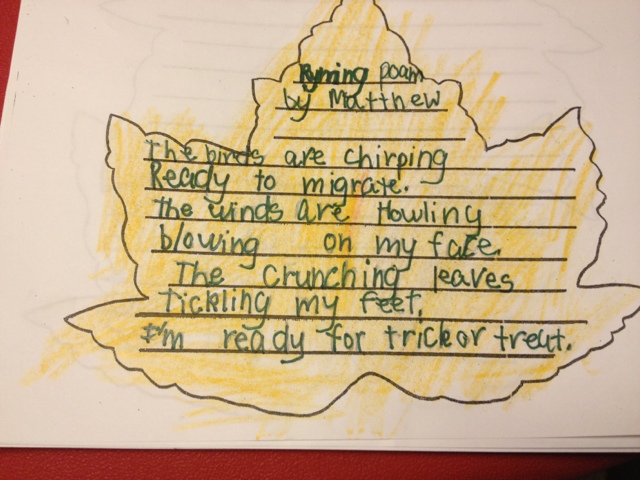 Ryming poam
by Matthew
The birds are chirping
Ready to migrate.
the winds are Howling
blowing on my face.
The crunching leaves
Tickling my feet.
I'm ready for trick or treat.